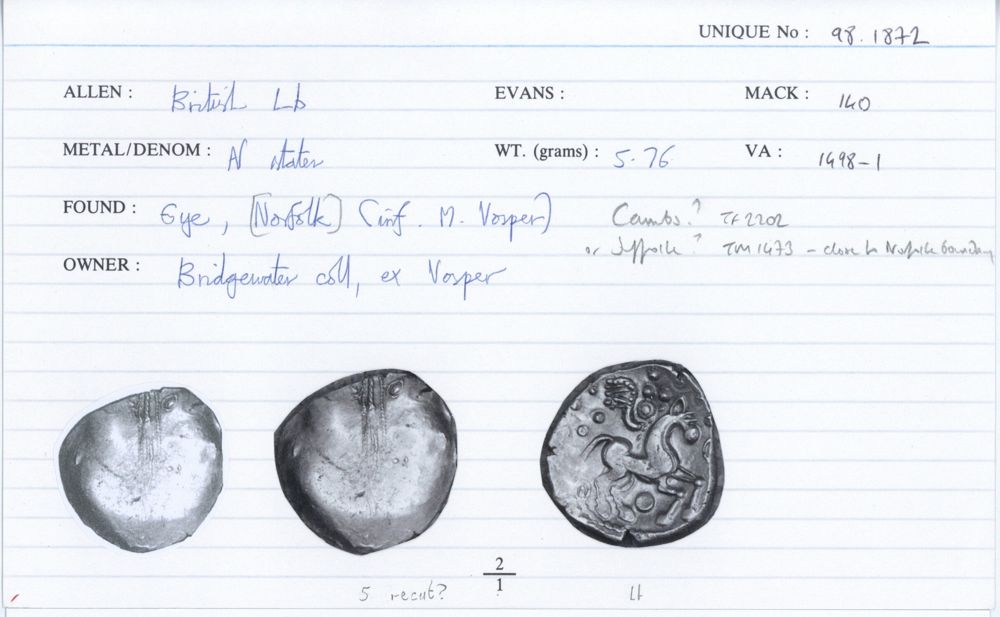 UNIQUE No : 98.1872
ALLEN : British Lb EVANS : MACK : 140
METAL/DENOM : N stater WT. (grams) : 5.76 VA : 1498-1
FOUND : Eye, [Norfolk] (inf. M. Vosper) Cambs.? TF2202
or Suffolk? TM1473 - close to Norfolk boundary
OWNER : Bridgewater coll, ex Vosper
2
1
5 recut?